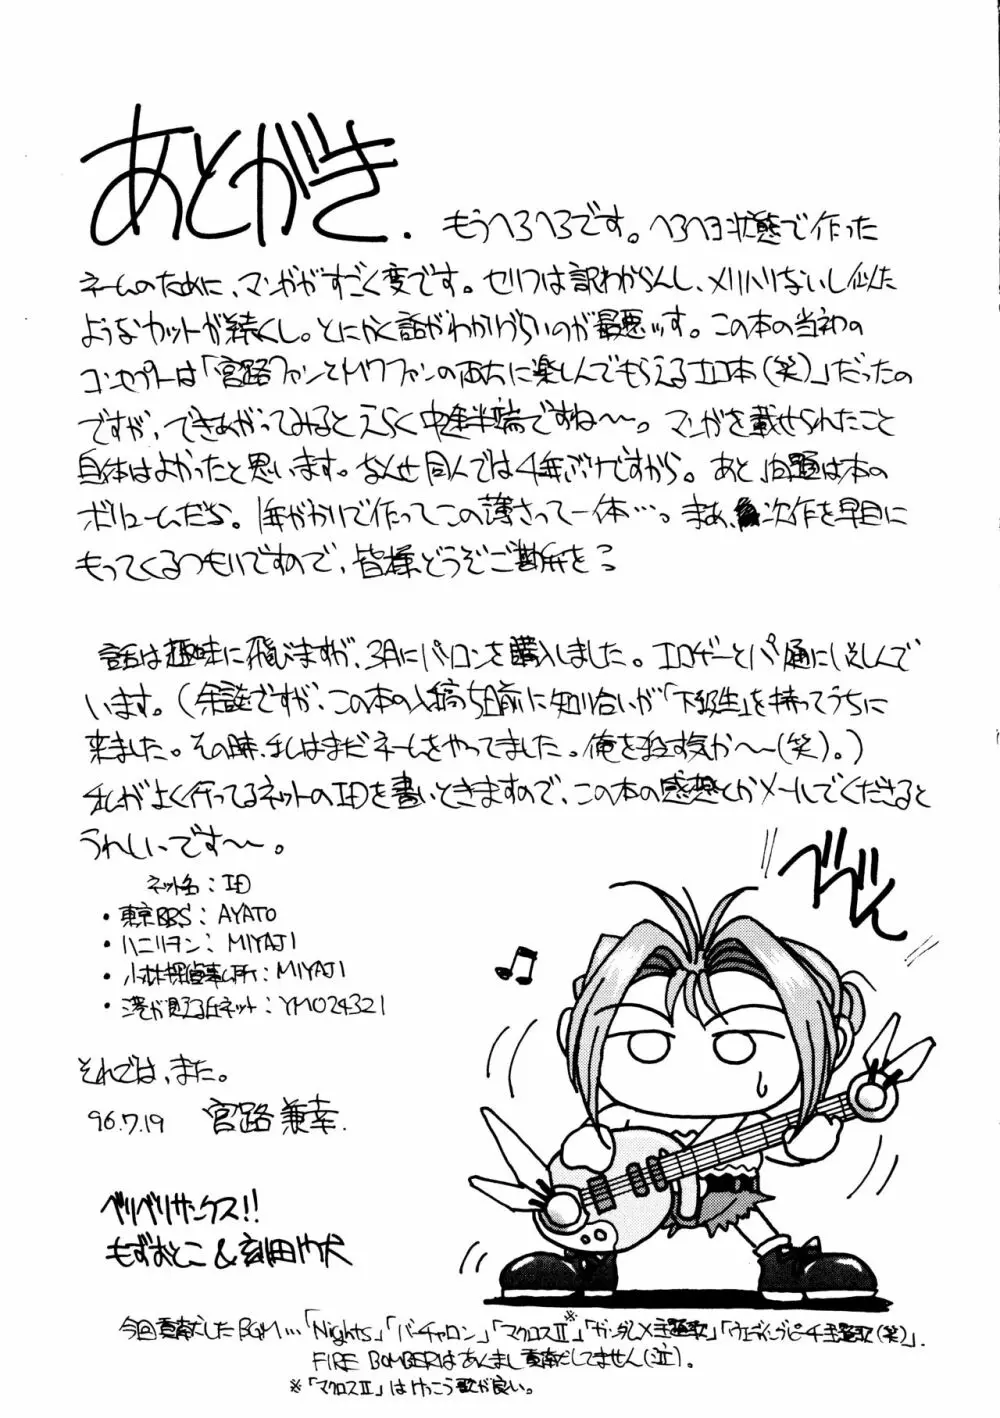 あとがき.
もうへろへろです。へろへろ状態で作った
ネームのために、マンガがすごく変です。セリフは訳わからんし、メリハリないし似た
ようなカットが続くし。とにかく話がわかりづらいのが最悪ッす。この本の当初の
コンセプトは「宮路ファンとMWファンの両方に楽しんでもらえるエロ本(笑)」だったの
ですが、できあがってみるとえらく中途半端ですね〜〜。マンガを載せられたこと
自体はよかったと思います。なんせ同人では4年ぶりですから。あと、問題は本の
ボリュームだな。1年がかりで作ってこの薄さって一体…。まあ、次作を早目に
もってくるつもりですので、皆様どうぞご勘弁をっ
話は趣味に飛びますが、3月にパソコンを購入しました。エロゲーとパソ通にいそしんで
います。(余談ですが、この本の入稿5日前に知り合いが「下級生」を持ってうちに
来ました。その時、私はまだネームをやってました。俺を殺す気か〜〜(笑)。)
私がよく行ってるネットのIDを書いときますので、この本の感想とかメールでくださると
うれしいです〜〜。
ネット名:ID
・東京BBS:AYATO
・ハニリヲン:MIYAJI
・小林探偵事ム所:MIYAJI
・港が見える丘ネット:YM024321
それでは、また。
96.7.19 宮路兼幸.
ベリベリサンクス!!
もずおとこ&刻田門大
♪
ベベベん
今回貢献したBGM…「Nights」「バーチャロン」「マクロスⅡ※」「ガンダムX主題歌」「ウェディングピーチ主題歌(笑)」.
FIRE BOMBERはあんまし貢献だしてません(泣).
※「マクロスⅡ」はけっこう歌が良い。